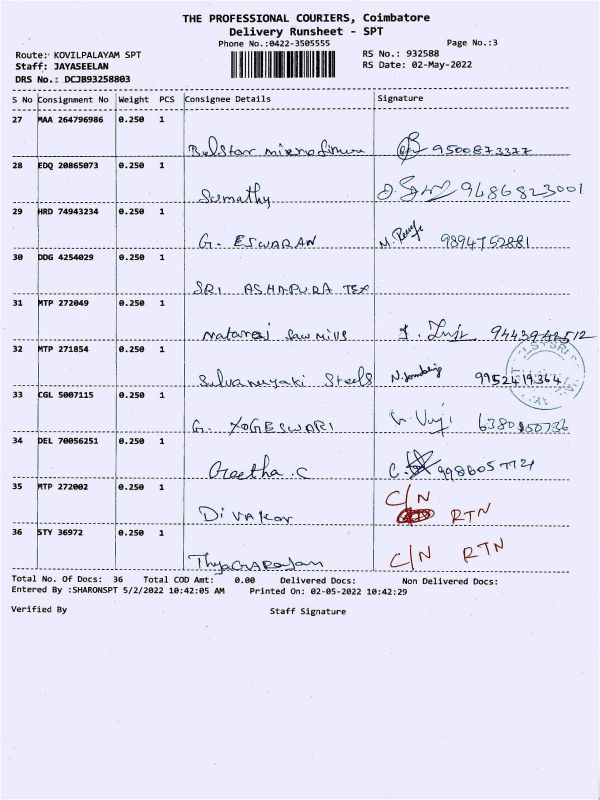 THE PROFESSIONAL COURIERS, Coimbatore
Delivery Runsheet - SPT
Phone No.:0422-3505555
Page No.:3
Route: KOVILPALAYAM SPT
RS No.: 932588
Staff: JAYASEELAN
RS Date: 02-May-2022
DRS No.: DCJB93258803
S No Consignment No Weight PCS Consignee Details Signature
27 MAA 264796986 0.250 1
9500873377
28 EDQ 20865073 0.250 1
Sumathy 9486823001
29 HRD 74943234 0.250 1
G. ESWARAN M. 9894752881
30 DDG 4254029 0.250 1
SRI ASHAPURA TEX
31 MTP 272049 0.250 1
Nataraj Saw Mills
32 MTP 271854 0.250 1
Selvanayaki Steels 9952419364
33 CGL 5007115 0.250 1
G. YOGESWARI
34 DEL 70056251 0.250 1
Geetha. C
35 MTP 272002 0.250 1
C/N
Divakar RTN
36 STY 36972 0.250 1
Thyagarajan C/N RTN
Total No. Of Docs: 36 Total COD Amt: 0.00 Delivered Docs: Non Delivered Docs:
Entered By :SHARONSPT 5/2/2022 10:42:05 AM Printed On: 02-05-2022 10:42:29
Verified By Staff Signature